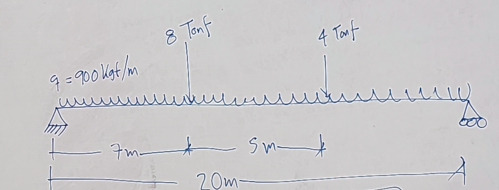 8 Tonf
4 Tonf
q = 900 kgf/m
7m
5m
20m